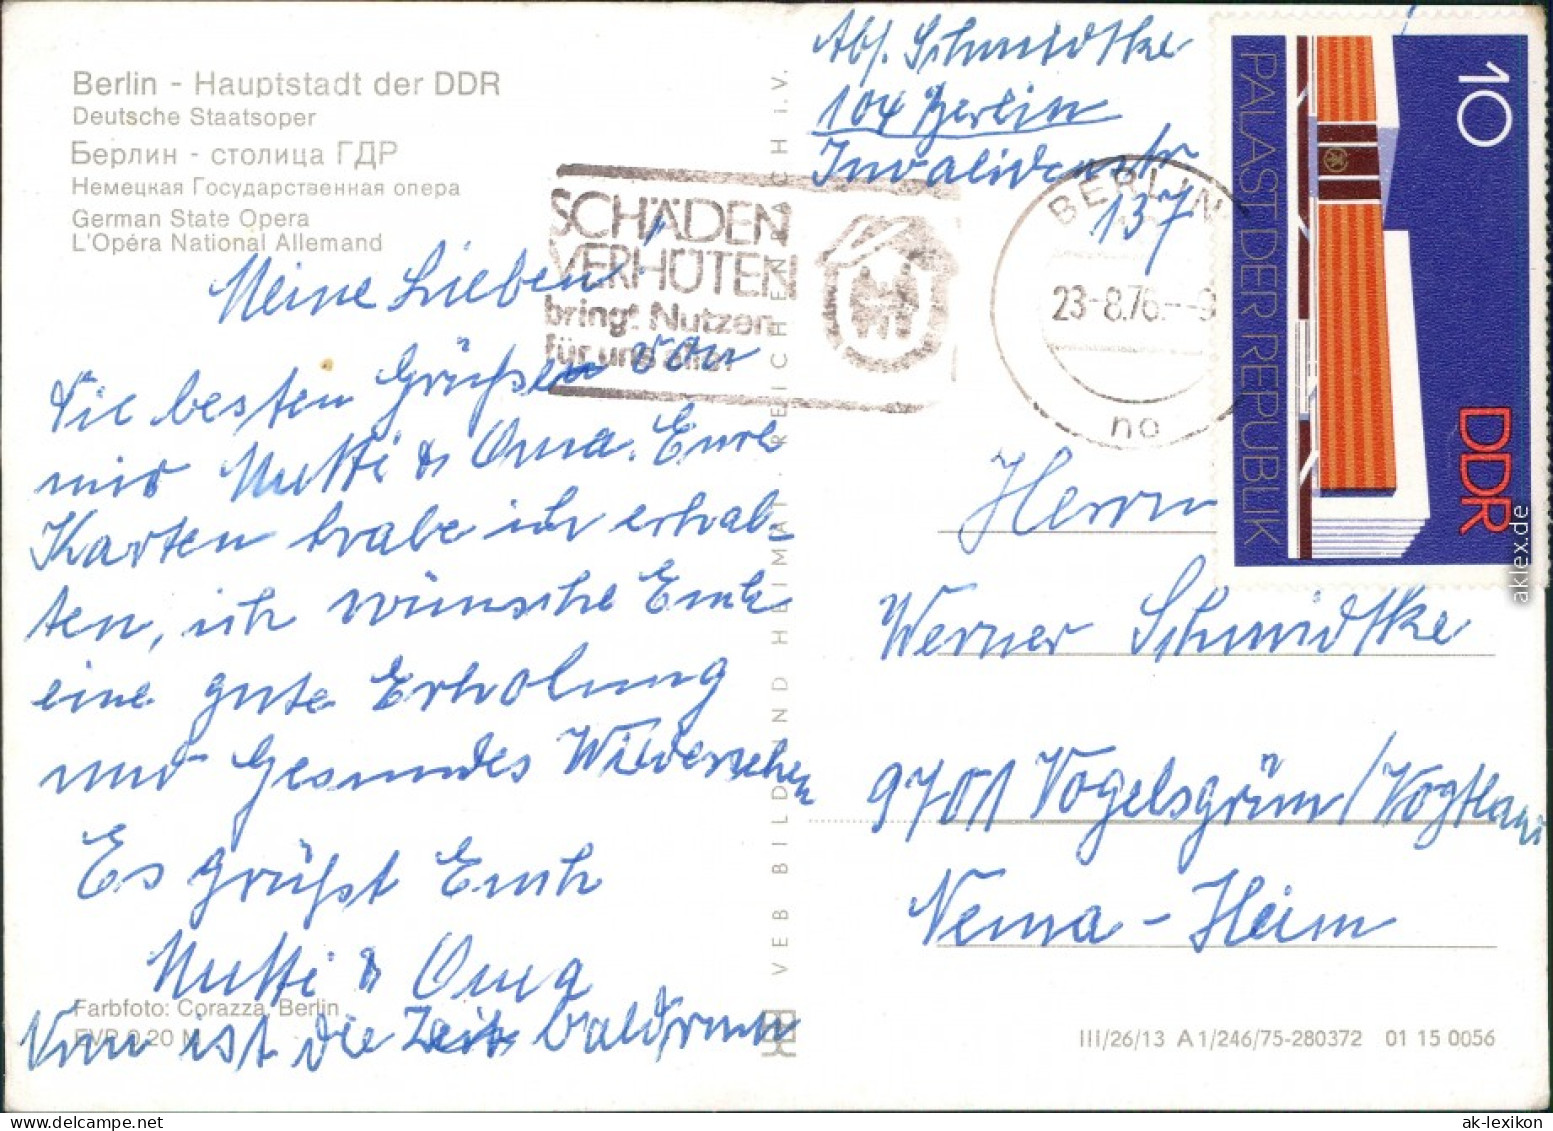 Berlin - Hauptstadt der DDR
Deutsche Staatsoper
Берлин - столица ГДР
Немецкая Государственная опера
German State Opera
L'Opéra National Allemand
Meine Lieben!
Die besten Grüßen von
mir Mutti & Oma. Eure
Karten habe ich erhal-
ten, ich wünsche Euch
eine gute Erholung
und Gesundes Wiedersehen
Es grüßt Euch
Mutti & Oma
Nun ist die Zeit bald rum
Farbfoto: Corazza, Berlin
EVP 0,20 M
VEB BILD UND HEIMAT REICHENBACH i.V.
SCHÄDEN
VERHÜTEN
bringt Nutzen
für uns alle!
BERLIN
23-8.76.--9
no
Abs. Schmidtke
104 Berlin
Invalidenstr
137
10
DDR
PALAST DER REPUBLIK
Herrn
Werner Schmidtke
9701 Vogelsgrün/Vogtland
Nema-Heim
III/26/13 A 1/246/75-280372 01 15 0056
aklex.de
ak-lexikon